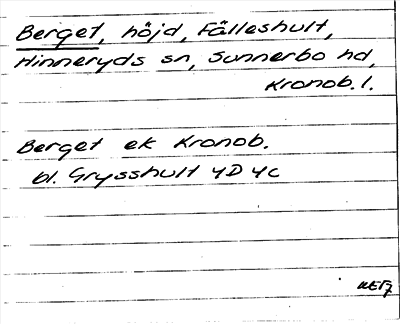 Berget, höjd, Fälleshult,
Hinneryds sn, Sunnerbo hd,
Kronob. l.
Berget ek Kronob.
bl. Grysshult 4D 4c